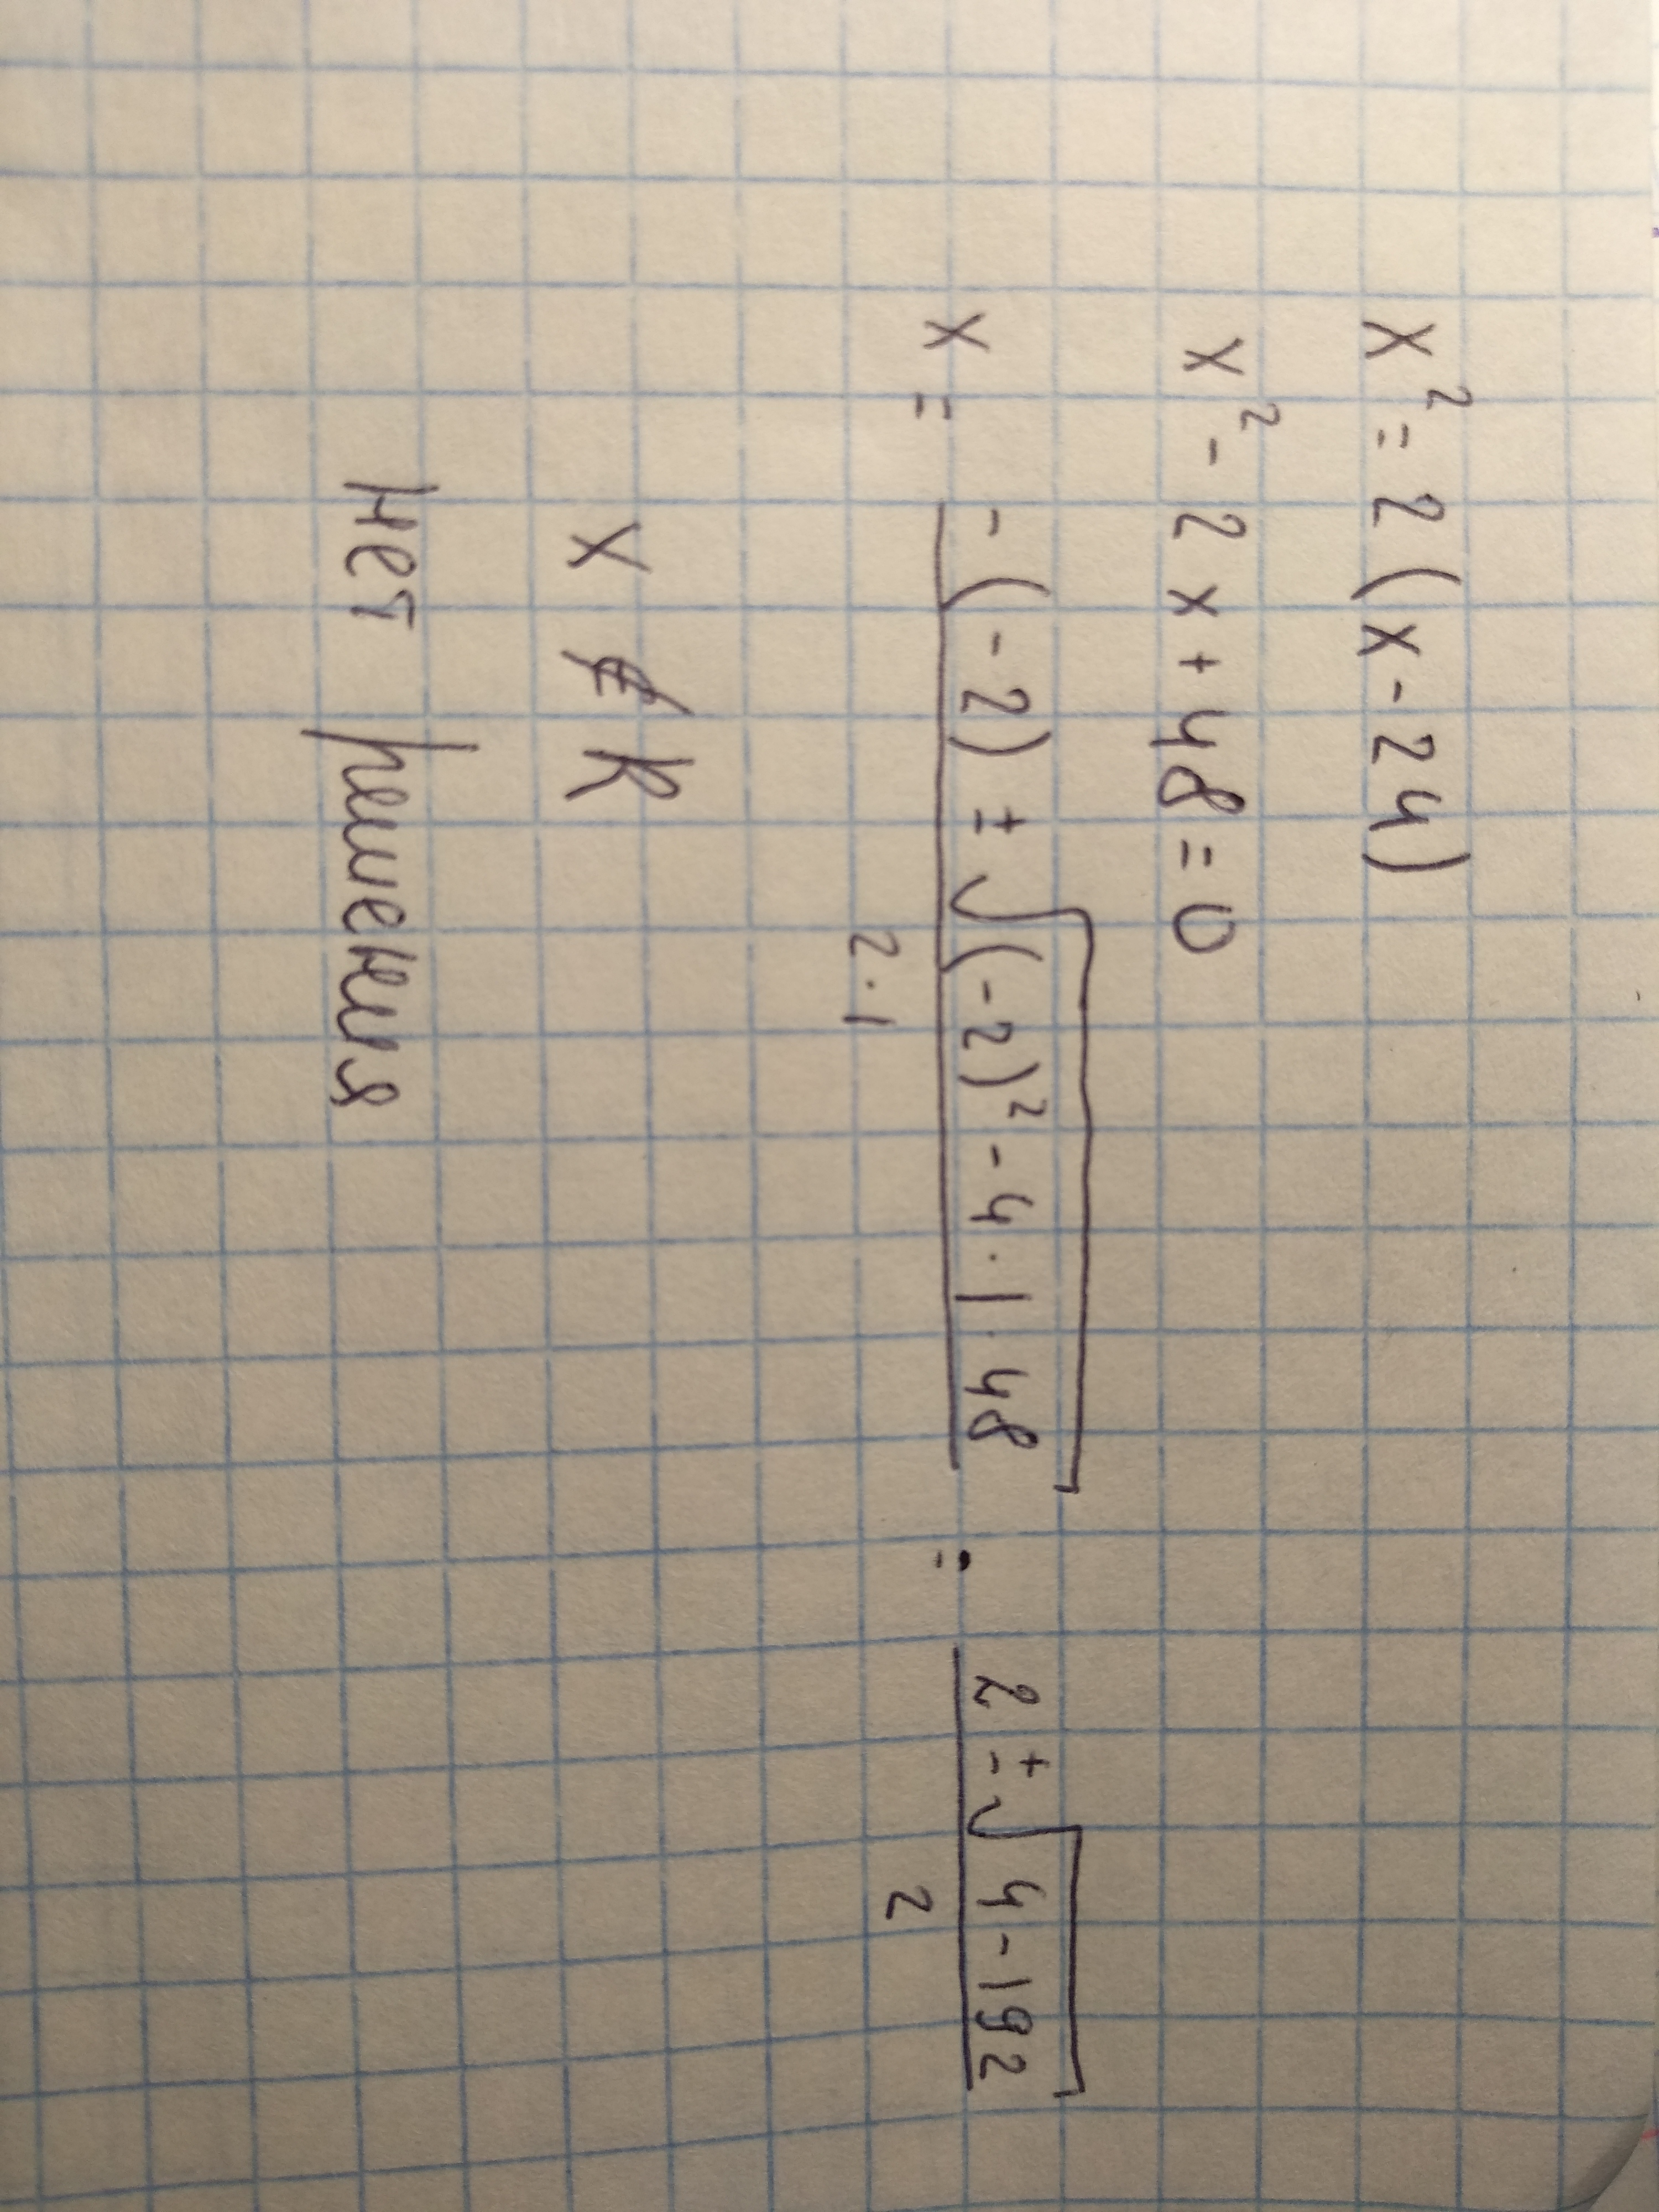 x² = 2(x - 24)
x² - 2x + 48 = 0
x = (-(-2) ± √((-2)² - 4 · 1 · 48)) / (2 · 1) = (2 ± √(4 - 192)) / 2
x ∉ R
нет решения